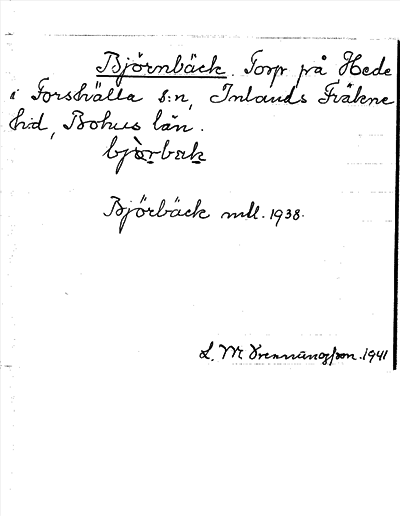 Björnbäck. Torp på Hede
i Forshälla s:n, Inlands Fräkne
hd, Bohus län.
bjòrbak
Björbäck mtl. 1938.
L. M. Svenningsson. 1941